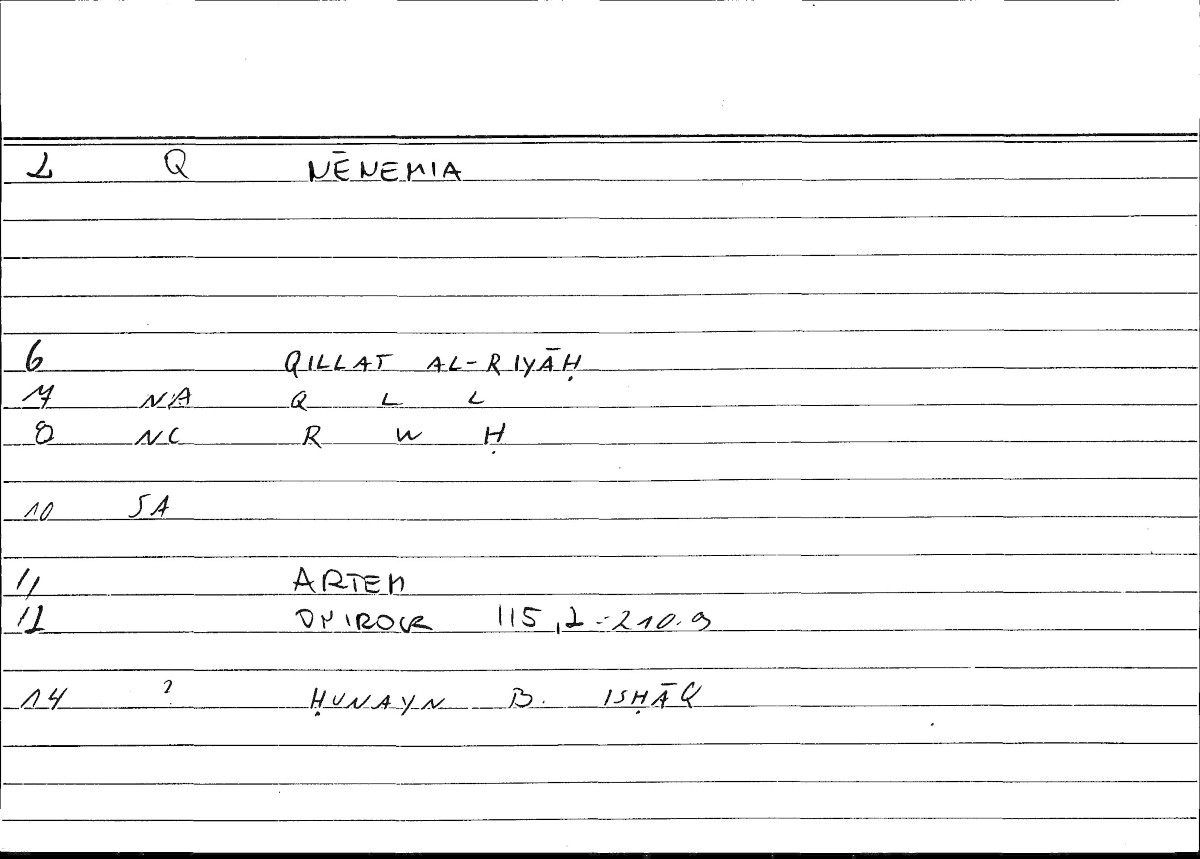 2 Q NĒNEMIA
6 QILLAT AL-RIYĀḤ
7 NA Q L L
8 NC R W Ḥ
10 SA
11 ARTEM
12 ONIROCR 115,2-210.9
14 ? ḤUNAYN B. ISḤĀQ